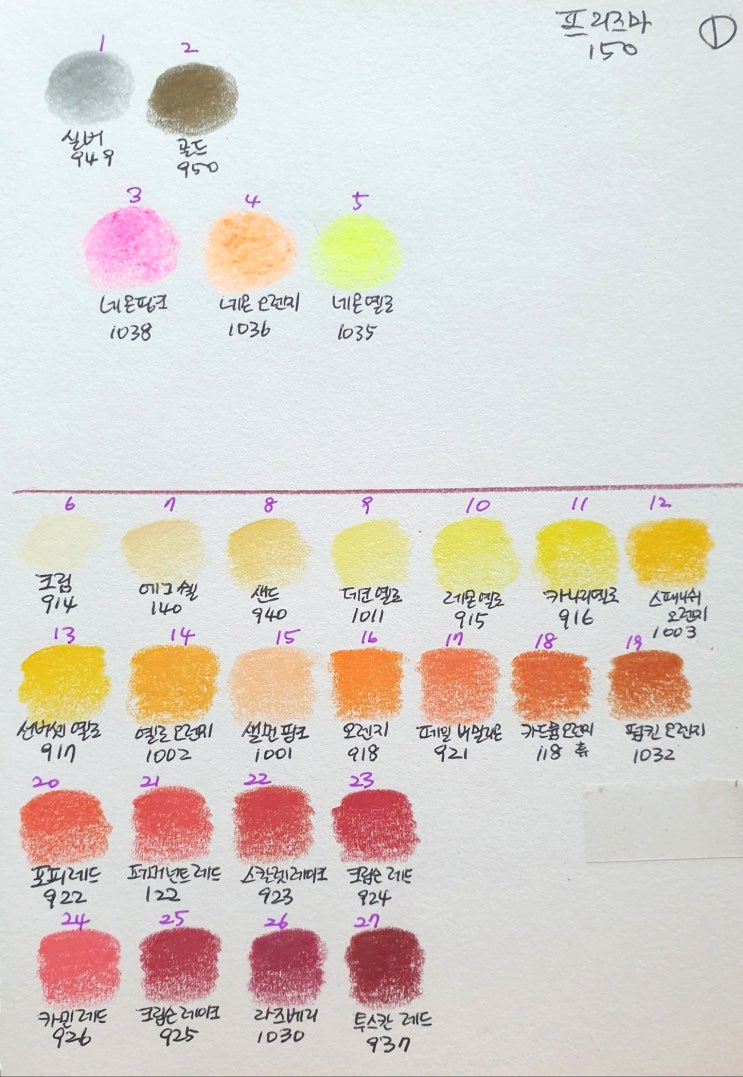 프리즈마 ①
150
1 2
실버 골드
949 950
3 4 5
네온핑크 네온 오렌지 네온옐로
1038 1036 1035
6 7 8 9 10 11 12
크림 에그쉘 샌드 데코옐로 레몬옐로 카나리옐로 스패니쉬
오렌지
914 140 940 1011 915 916 1003
13 14 15 16 17 18 19
선버썬 옐로 옐로 오렌지 샐먼 핑크 오렌지 페일 버밀리온 카드뮴오렌지 펌킨 오렌지
917 1002 1001 918 921 118 휴 1032
20 21 22 23
포피레드 퍼머넌트 레드 스칼렛레이크 크림슨 레드
922 122 923 924
24 25 26 27
카민 레드 크림슨 레이크 라즈베리 투스칸 레드
926 925 1030 937